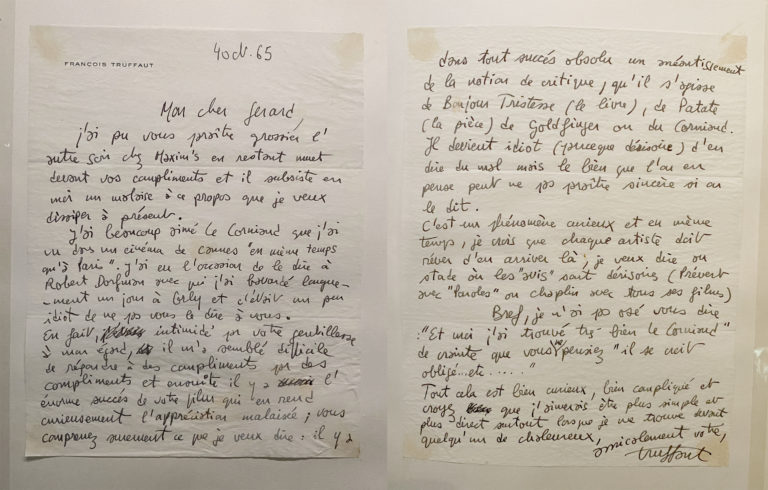 4 oct. 65
FRANÇOIS TRUFFAUT
Mon cher Gerard,
j'ai pu vous paraître grossier l'
autre soir chez Maxim's en restant muet
devant vos compliments et il subsiste en
moi un malaise à ce propos que je veux
dissiper à présent.
J'ai beaucoup aimé le Corniaud que j'ai
vu dans un cinéma de Cannes "en même temps
qu'à Paris". J'ai eu l'occasion de le dire à
Robert Dorfman avec qui j'ai bavardé longue-
-ment un jour à Orly et c'était un peu
idiot de ne pas vous le dire à vous.
En fait, intimidé par votre gentillesse
à mon égard, il m'a semblé difficile
de répondre à des compliments par des
compliments et ensuite il y a l'
énorme succès de votre film qui en rend
curieusement l'appréciation malaisée ; vous
comprenez surement ce que je veux dire : il y a
dans tout succès absolu un anéantissement
de la notion de critique, qu'il s'agisse
de Bonjour Tristesse (le livre), de Patate
(la pièce) de Goldfinger ou du Corniaud.
Il devient idiot (parceque dérisoire) d'en
dire du mal mais le bien que l'on en
pense peut ne pas paraître sincère si on
le dit.
C'est un phénomène curieux et en même
temps, je crois que chaque artiste doit
rêver d'en arriver là, je veux dire au
stade où les "avis" sont dérisoires (Prévert
avec "Paroles" ou Chaplin avec tous ses films)
Bref, je n'ai pas osé vous dire
: "Et moi j'ai trouvé très bien le Corniaud"
de crainte que vous ne pensiez "il se croit
obligé... etc....."
Tout cela est bien curieux, bien compliqué et
croyez que j'aimerais être plus simple et
plus direct surtout lorsque je me trouve devant
quelqu'un de chaleureux,
amicalement vôtre,
truffaut